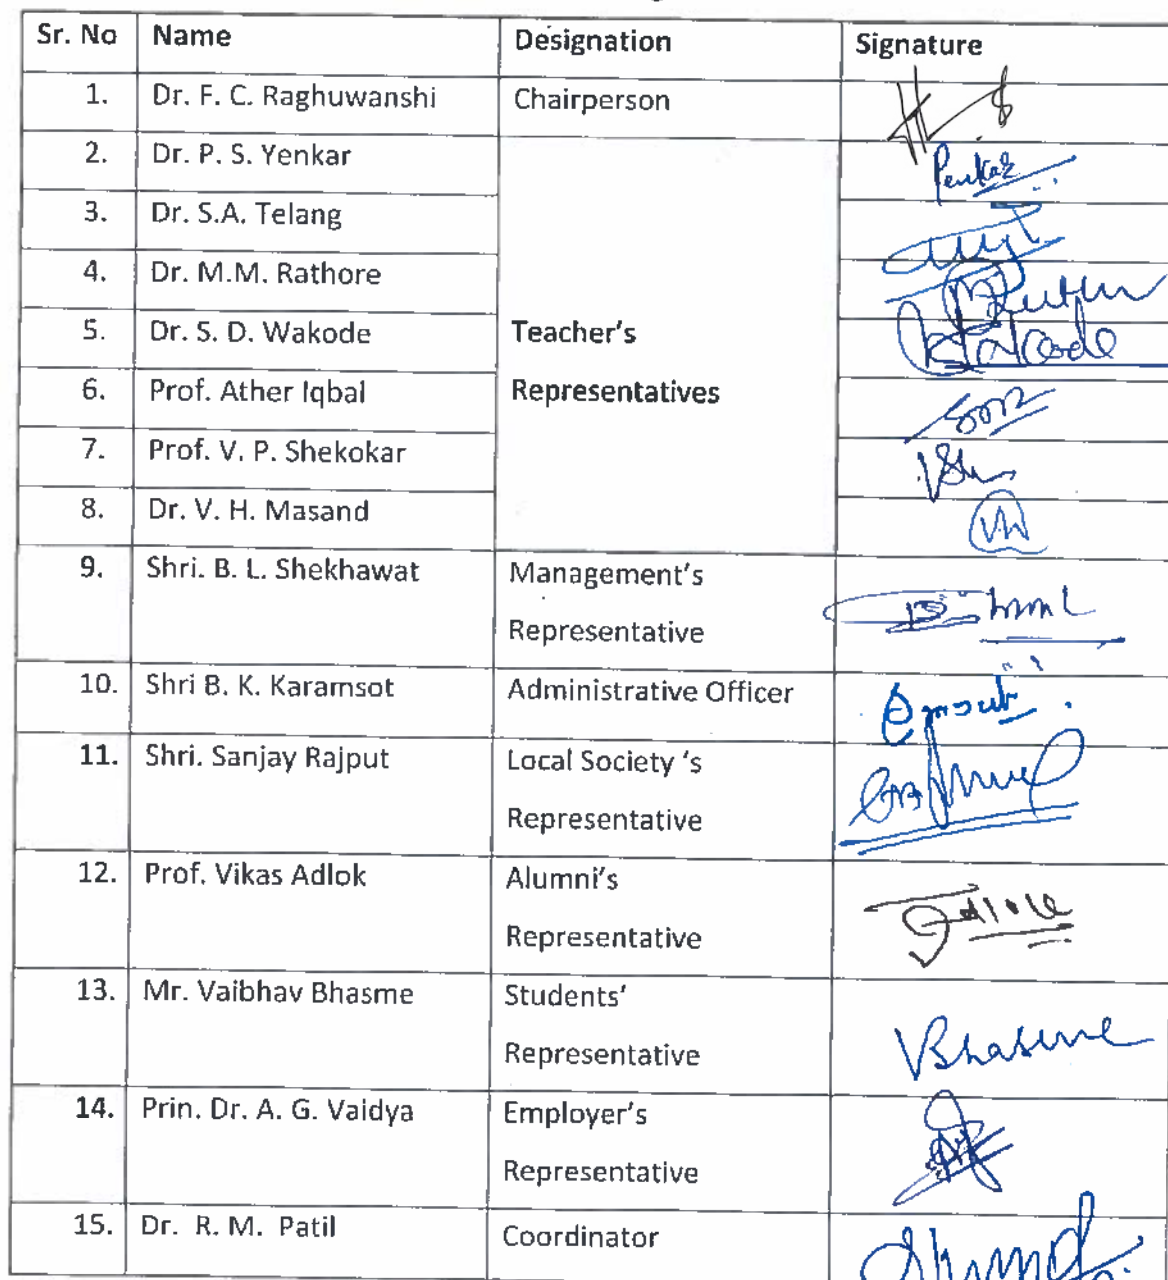 Sr. No Name Designation Signature
1. Dr. F. C. Raghuwanshi Chairperson
2. Dr. P. S. Yenkar
3. Dr. S.A. Telang
4. Dr. M.M. Rathore
5. Dr. S. D. Wakode Teacher's
6. Prof. Ather Iqbal Representatives
7. Prof. V. P. Shekokar
8. Dr. V. H. Masand
9. Shri. B. L. Shekhawat Management's
Representative
10. Shri B. K. Karamsot Administrative Officer
11. Shri. Sanjay Rajput Local Society 's
Representative
12. Prof. Vikas Adlok Alumni's
Representative
13. Mr. Vaibhav Bhasme Students'
Representative
VBhasme
14. Prin. Dr. A. G. Vaidya Employer's
Representative
15. Dr. R. M. Patil Coordinator